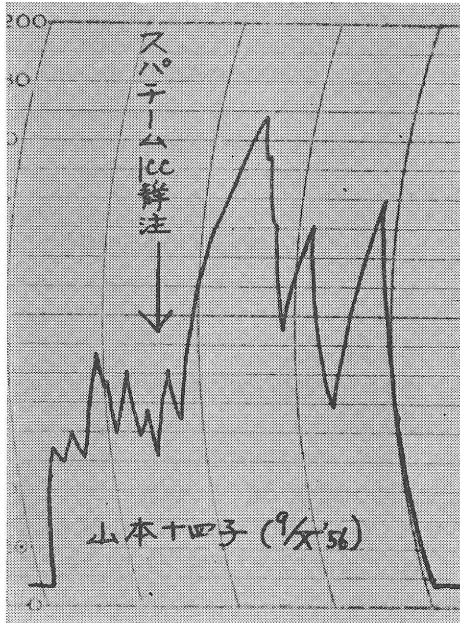 200
80
0
スパチーム1cc静注
山本十四子 (9/X '56)
0